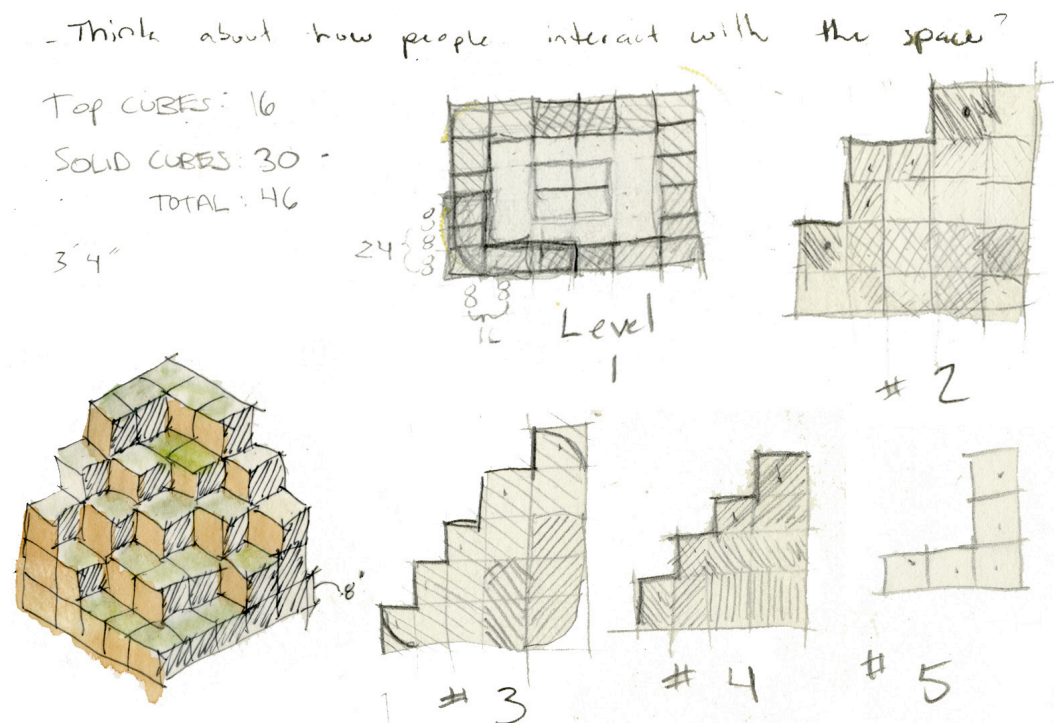 - Think about how people interact with the space?
Top CUBES: 16
SOLID CUBES: 30 -
TOTAL: 46
3'4"
24
8
8
8
8 8
16
Level
1
# 2
8"
# 3
# 4
# 5